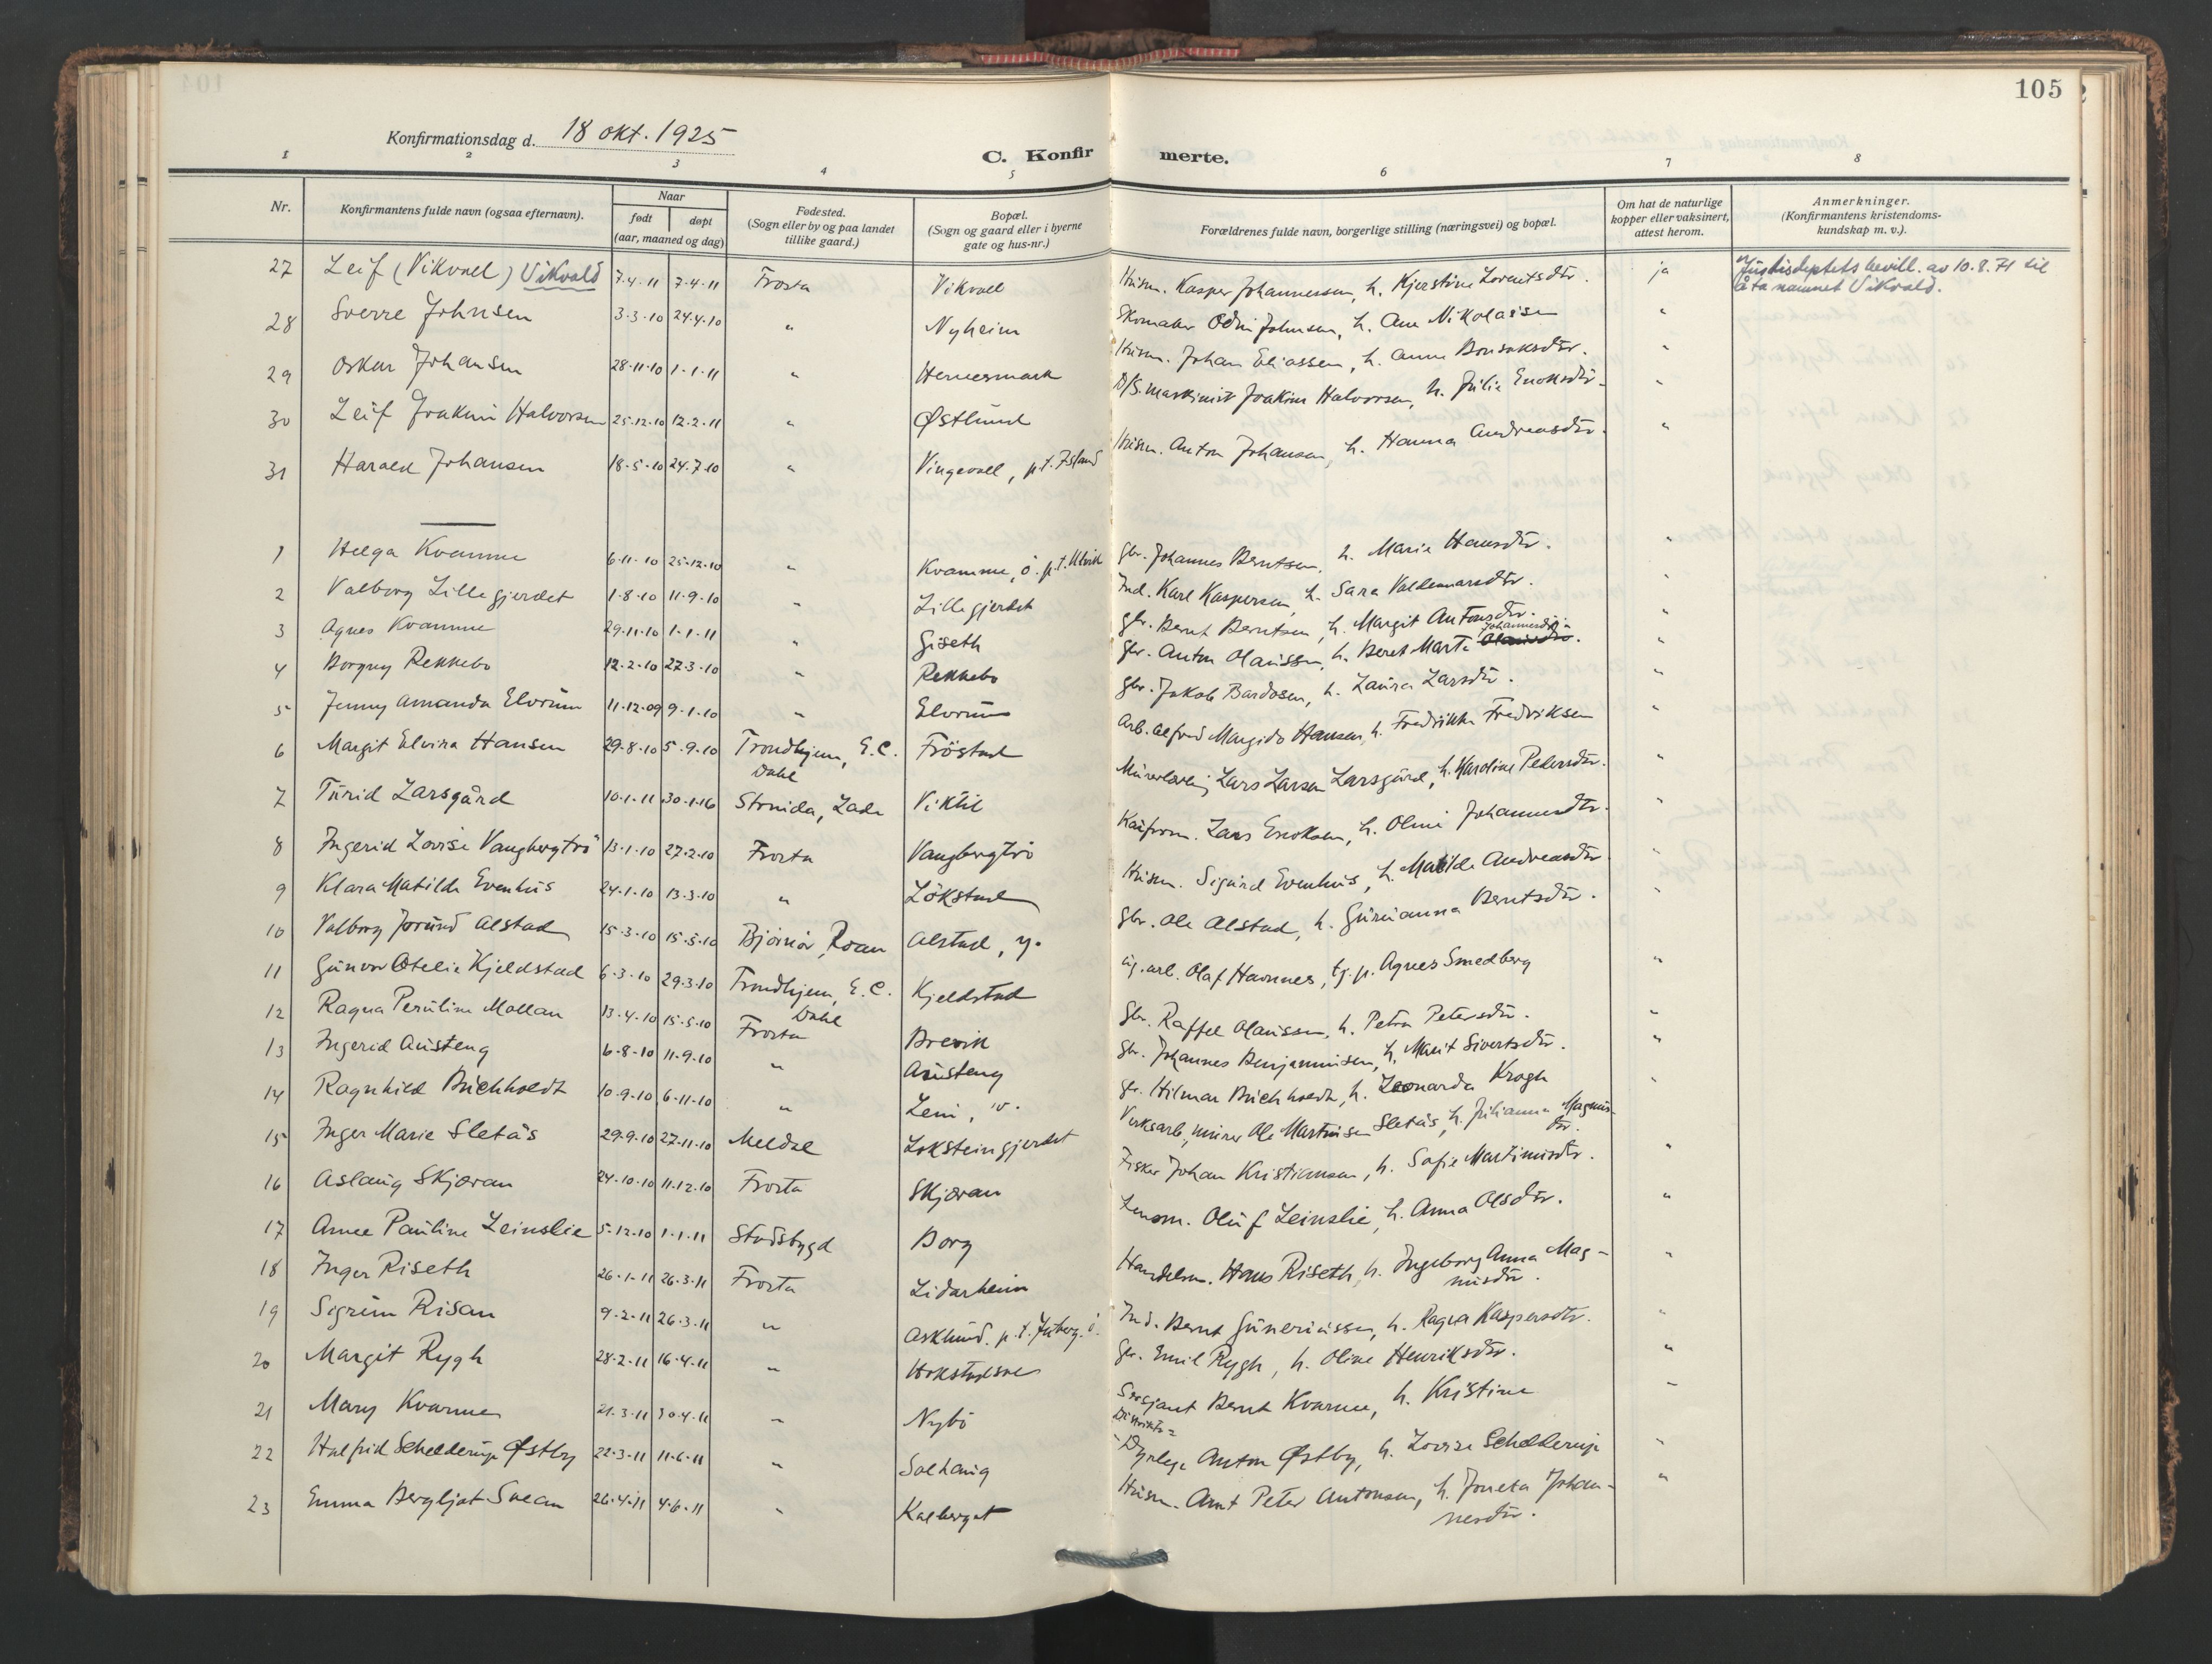 105
Konfirmationsdag d. 18 okt. 1925
C. Konfirmerte.
1 2 3 4 5 6 7 8
Nr.
Konfirmantens fulde navn (ogsaa efternavn).
Naar
født døpt
(aar, maaned og dag)
Fødested.
(Sogn eller by og paa landet
tillike gaard.)
Bopæl.
(Sogn og gaard eller i byerne
gate og hus-nr.)
Forældrenes fulde navn, borgerlige stilling (næringsvei) og bopæl.
Om hat de naturlige
kopper eller vaksinert,
attest herom.
Anmerkninger.
(Konfirmantens kristendoms-
kundskap m. v.).
27 Leif (Vikvall) Vikvald 7-4-11 7-4-11 Frosta Vikvall Husm. Kasper Johannessen, h. Kjerstine Lorentsdtr. ja Justisdeptets bevill. av 10.8.71 til
å ta navnet Vikvald.
28 Sverre Johnsen 3-3-10 24.4.10 " Nyheim Skomaker Odin Johnsen, h. Ane Nikolaisen "
29 Oskar Johansen 28-11-10 1-1-11 " Hernesmark Husm. Johan Eliassen, h. Anne Bonsaksdtr. "
30 Leif Joakim Halvorsen 25-12-10 12-2-11 " Østlund D/S. maskinist Joakim Halvorsen, h. Julie Enoksdtr. "
31 Harald Johansen 18-5-10 24.7.10 " Vingevall, p.t. Island Husm. Anton Johansen, h. Hanna Andreasdtr. "
1 Helga Kvamme 6-11-10 25-12-10 " Kvamme, ö. p.t. Ulvik Gbr. Johannes Berntsen, h. Marie Hansdtr. "
2 Valborg Lillegjerdet 1-8-10 11-9-10 " Lillegjerdet Ind. Karl Kaspersen, h. Sara Valdemarsdtr. "
3 Agnes Kvamme 29-11-10 1-1-11 " Giseth Gbr. Bernt Berntsen, h. Margit Antonsdtr. "
4 Borgny Rekkebo 12-2-10 27-3-10 " Rekkebo Gbr. Anton Olaussen, h. Beret Marta Johannesdtr. "
5 Jenny Amanda Elvrum 11-12-09 9-1-10 " Elvrum Gbr. Jakob Bardosen, h. Laura Larsdtr. "
6 Margit Elvira Hansen 29-8-10 5-9-10 Trondhjem, E.C. Dahl Fröstad Arb. Alfred Margido Hansen, h. Fredrikke Fredriksen "
7 Turid Larsgård 10-1-11 30-1-16 Strinda, Lade Viktil Murerlærling Lars Larsen Larsgård, h. Karoline Pedersdtr. "
8 Ingerid Lovise Vangbergtrö 13-1-10 27-2-10 Frosta Vangbergtrö Kaiform. Lars Enoksen, h. Oline Johannesdtr. "
9 Klara Matilde Evenhus 24-1-10 13-3-10 " Lökstad Husm. Sigurd Evenhus, h. Matilde Andreasdtr. "
10 Valborg Jorund Alstad 15-3-10 15-5-10 Bjørnör, Roan Alstad, y. Gbr. Ole Alstad, h. Gurianna Berntsdtr. "
11 Gunvor Otelie Kjeldstad 6-3-10 29-3-10 Trondhjem, E.C. Dahl Kjeldstad ug. arb. Olaf Havnnes, tj.p. Agnes Smedberg "
12 Ragna Pauline Mollan 13-4-10 15-5-10 Frosta Brevik Gbr. Raffel Olaussen, h. Petra Petersdtr. "
13 Ingerid Austeng 6-8-10 11-9-10 " Austeng Gbr. Johannes Benjaminsen, h. Marit Sivertsdtr. "
14 Ragnhild Buchholdt 10-9-10 6-11-10 " Lein, v. Gr. Hilmar Buchholdt, h. Leonarda Krogh "
15 Inger Marie Sletås 29-9-10 27-11-10 Meldal Loksteingjerdet Verksarb., murer Ole Martinsen Sletås, h. Julianna Magnusdtr.
16 Aslaug Skjæran 24-10-10 11-12-10 Frosta Skjæran Fisker Johan Kristiansen, h. Sofie Martinusdtr. "
17 Anne Pauline Leinslie 5-12-10 1-1-11 Stadsbygd Borg Lensm. Oluf Leinslie, h. Anna Olsdtr. "
18 Inger Riseth 26-1-11 26-3-11 Frosta Lidarheim Handelsm. Hans Riseth, h. Ingeborg Anna Mag-
nusdtr. "
19 Sigrun Risan 9-2-11 26-3-11 " Asklund. p.t. Juberg. ö. Ind. Bernt Guneriussen, h. Ragna Kaspersdtr. "
20 Margit Rygh 28-2-11 16-4-11 " Hokstadsve Gbr. Emil Rygh, h. Oline Henriksdtr. "
21 Mary Kvamme 21-3-11 30-4-11 " Nybö Sersjant Bernt Kvamme, h. Kristine "
22 Halfrid Schelderup Østby 22-3-11 11-6-11 " Solhaug Distrikts-
Dyrlege Anton Østby, h. Lovise Schelderup "
23 Emma Bergljot Svean 26-4-11 4-6-11 " Kalberget Husm. Arnt Peter Antonsen, h. Joneta Johan-
nesdtr. "